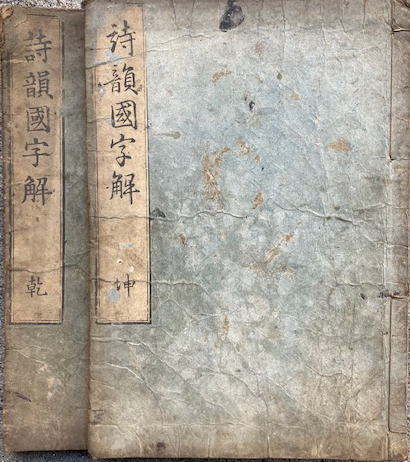 詩韻國字解 坤
詩韻國字解 乾